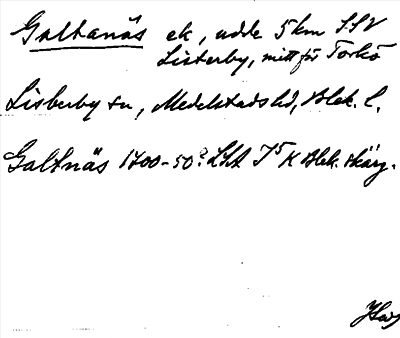 Galtanäs ek, udde 5 km SSV
Listerby, mitt för Torkö
Listerby sn, Medelstads hd, Blek. l.
Galtnäs 1700-50? LSA J5 K Blek. skärg.